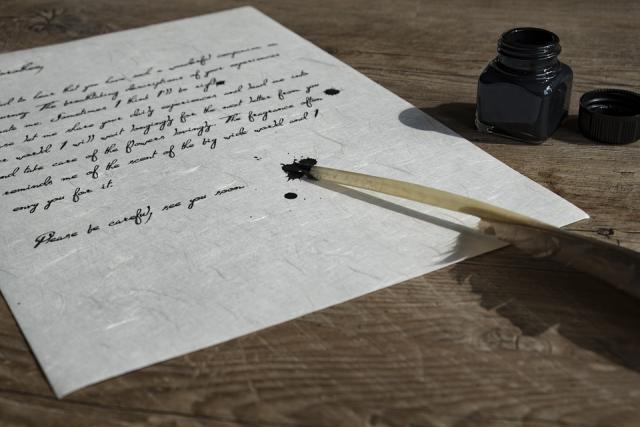 to hear that you have had a wonderful
The breathtaking descriptions of your experiences
me. Sometimes I think I'll to
let me share your daily experiences and lead me into
world I will wait longingly for the next letter from you
and take care of the flowers lovingly. The fragrance of
reminds me of the scent of the big wide world and I
envy you for it.
Please be careful, see you soon.